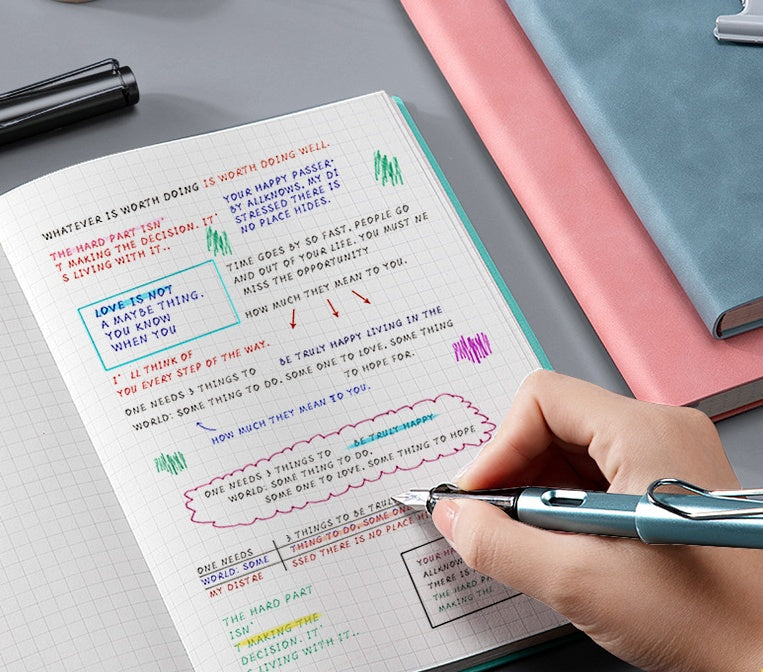 WHATEVER IS WORTH DOING IS WORTH DOING WELL.
THE HARD PART ISN'
T MAKING THE DECISION. IT'
S LIVING WITH IT..
YOUR HAPPY PASSER-
BY ALLKNOWS, MY DI
STRESSED THERE IS
NO PLACE HIDES.
TIME GOES BY SO FAST, PEOPLE GO
AND OUT OF YOUR LIFE. YOU MUST NE
MISS THE OPPORTUNITY
HOW MUCH THEY MEAN TO YOU.
LOVE IS NOT
A MAYBE THING.
YOU KNOW
WHEN YOU
I' LL THINK OF
YOU EVERY STEP OF THE WAY.
BE TRULY HAPPY LIVING IN THE
ONE NEEDS 3 THINGS TO
WORLD: SOME THING TO DO, SOME ONE TO LOVE, SOME THING
TO HOPE FOR.
HOW MUCH THEY MEAN TO YOU.
ONE NEEDS 3 THINGS TO BE TRULY HAPPY
WORLD: SOME THING TO DO,
SOME ONE TO LOVE, SOME THING TO HOPE
ONE NEEDS 3 THINGS TO BE TRULY
WORLD: SOME THING TO DO, SOME ONE
MY DISTRE SSED THERE IS NO PLACE HI
THE HARD PART
ISN'
T MAKING THE
DECISION. IT'
S LIVING WITH IT..
YOUR HA
ALLKNOW
THERE IS
THE HARD PA
MAKING THE